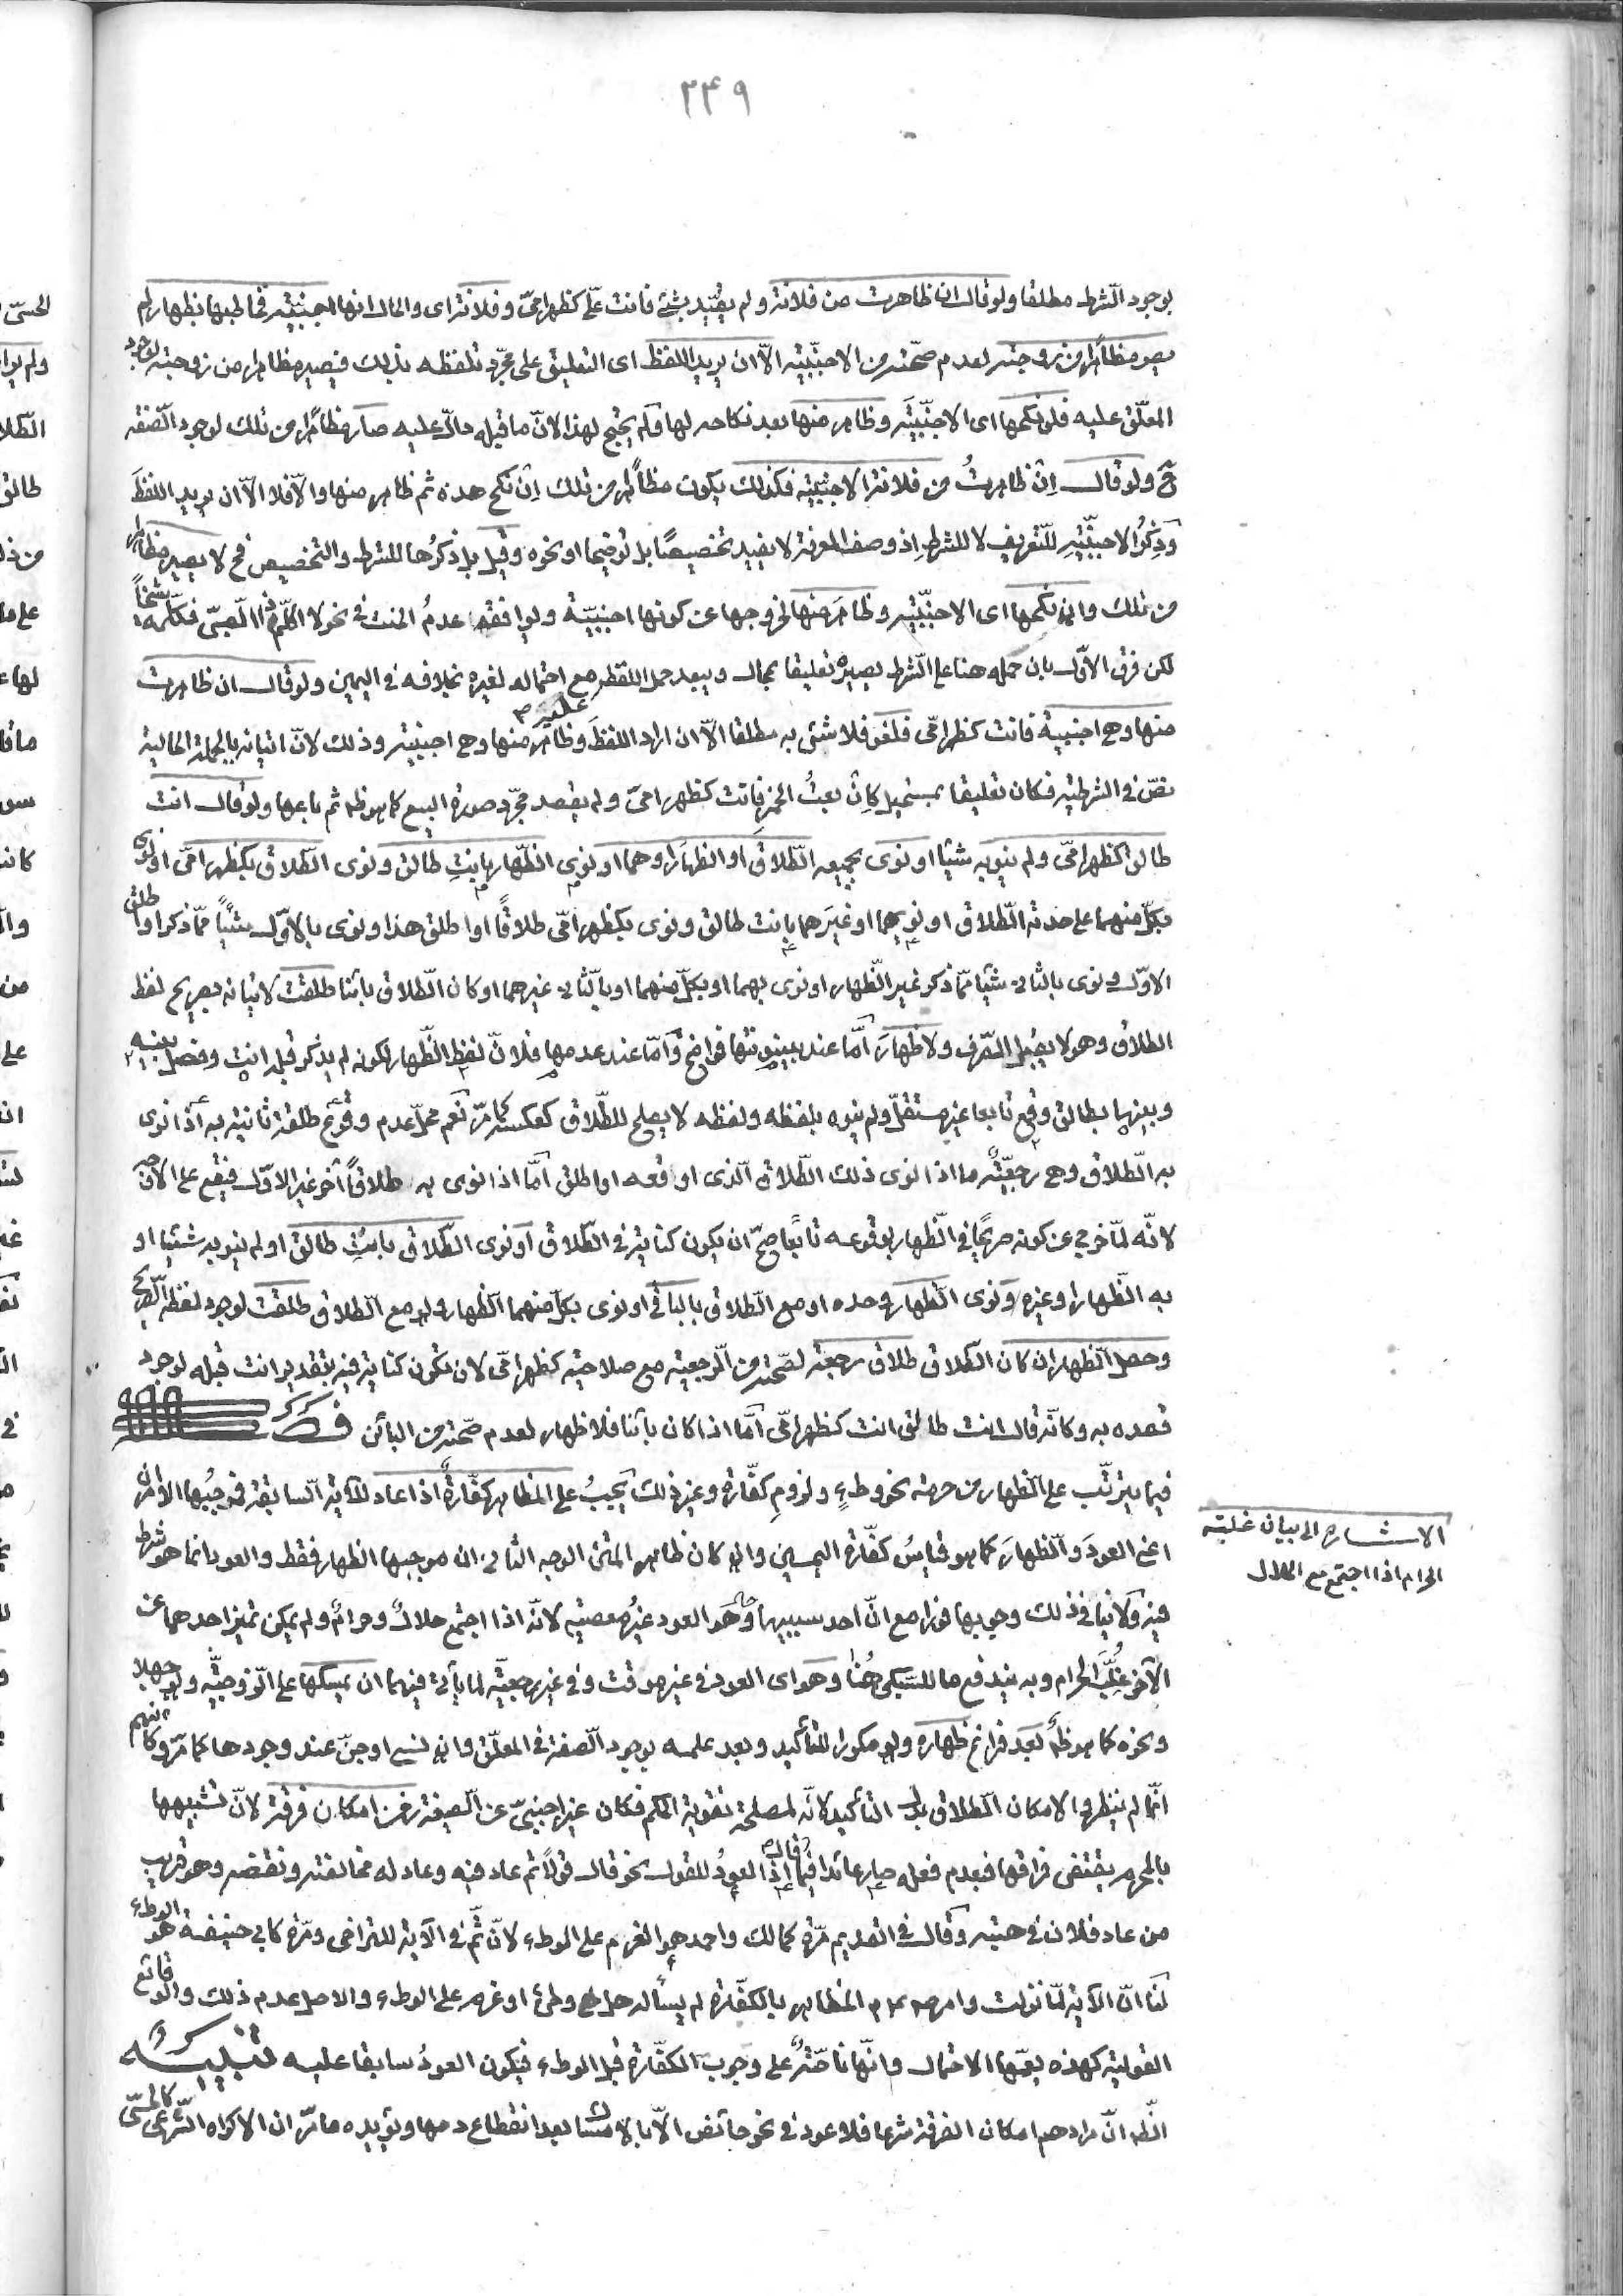 ٣٤٩
بوجود الشرط مطلقا ولو قال ان ظاهرت من فلانة ولم يقيّد بشئ فانت علىّ كظهر امىّ وفلانة اى والحال انها اجنبيّة فخاطبها بظهار لم
يصر مظاهرا من زوجته لعدم صحّته من الاجنبيّة الاّ ان يريد اللفظ اى التعليق على مجرّد تلفّظه بذلك فيصير مظاهرا من زوجته لوجود
المعلّق عليه فلو نكحها اى الاجنبيّة وظاهر منها بعد نكاحه لها ولم يحتج لهذا لانّ ما قبله دالّ عليه صار مظاهرا من تلك لوجود الصّفة
ح ولو قال اِن ظاهرتُ من فلانة الاجنبيّة فكذلك يكون مظاهرا من تلك اِن نكح هذه ثم ظاهر منها والاّ فلا الاّ ان يريد اللفظَ
وَذِكْرُ الاجنبيّةِ للتّعريف لا للشرط اِذ وصف المعرفة لا يفيد تخصيصًا بل توضيحا او نحوه وقيل بل ذكرُها للشرط والتخصيص فح لا يصير مظاهرا
من تلك وان نكحها اى الاجنبيّة وظاهَرَ منها لخروجها عن كونها اجنبيّة ويوافقه عدمُ الحنث فى نحو لا اكلّم ذا الصّبىّ فكلّمه شيخاً
لكن فرق الاوّل بان حمله هنا على الشّرط يصيره تعليقا بمحال ويبعد حمل اللفظ عليه مع احتماله لغيره بخلافه فى اليمين ولو قال ان ظاهرت
منها وهى اجنبية فانت كظهر امّى فلغو فلا شئ به مطلقا الاّ ان اراد اللفظَ وظاهر منها وهى اجنبيّة وذلك لانّ اتيانه بالجملة الحالية
نصّ فى الشرطيّة فكان تعليقا بمستحيل كاِن بعتُ الخمر فانت كظهر امىّ ولم يقصد مجرّد صورة البيع كما هو ظ ثم باعها ولو قال انت
طالق كظهر امّى ولم ينو به شيئا او نوى بجميعه الطّلاق او الظهار او هما او نوى الظّهار بانتِ طالق ونوى الطّلاق بكظهر امّى او نوى
بكلّ منهما على حدته الطّلاق او نويهما او غيرهما بانت طالق ونوى بكظهر امّى طلاقًا او اطلق هذا ونوى بالاوّل شيئاً ممّا ذكر او اطلق
الاوّل ونوى بالثانى شيئا ممّا ذكر غير الظّهار او نوى بهما او بكلّ منهما او بالثّانى غيرهما او كان الطّلاق بائنا طلقت لاتيانه بصريح لفظ
الطلاق وهو لا يقبل الصّرف ولا ظهارَ امّا عند بينونتها فواضح وَامّا عند عدمها فلانّ لفظ الظّهار لكونه لم يذكر قبله انتِ وفصل بينه
وبينها بطالق وقع تابعا غير مستقلّ ولم ينوه بلفظه ولفظه لا يصلح للطّلاق كعكسه كما مرّ نَعم محلّ عدم وقوع طلقة ثانية به اذا نوى
به الطّلاق وهى رجعيّةٌ ما اذا نوى ذلك الطّلاق الّذى اوقعه او اطلق امّا اذا نوى به طلاقاً آخر غير الاوّل فيقع على الاوجه
لانّه لمّا خرج عن كونه صريحًا فى الظّهار بوقوعه تابعًا صحّ ان يكون كناية فى الطّلاق او نوى الطّلاق بانتِ طالق او لم ينو به شيئا او
به الظّهار او غيره وَنوى الظّهار وحده او مع الطّلاق بالباقى او نوى بكلّ منهما الظّهار ولو مع الطّلاق طلقت لوجود لفظه الصّريح
وحصل الظّهار ان كان الطّلاق طلاق رجعة لصحّته من الرّجعيّة مع صلاحيّة كظهر امّى لان تكون كناية فيه بتقدير انت قبله لوجود
قصده به وكانّه قال انت طالق انت كظهر امّى امّا اذا كان بائنا فلا ظهار لعدم صحّته من البائن
فيما يترتّب على الظهار من حرمة نحو وطءٍ ولزومِ كفّارة وغير ذلك يَجِبُ على المظاهر كفّارةٌ اذا عاد للآية السّابقة فموجبُها الامران
اعنى العودَ وَالظّهارَ كما هو قياسُ كفّارة اليمين وان كان ظاهر المتن الوجه الثانى ان موجبها الظهار فقط والعود انما هو شرط
فيه ولا ينافى ذلك وجوبها فورا مع انّ احد سببيها وهو العود غيرُ معصية لانّه اذا اجتمع حلالٌ وحرامٌ ولم يمكن تميز احدهما عن
الآخر غُلِّبَ الحرام وبه يندفع ما للسّبكى هُنا وهو اى العود فى غير موقت وفى غير رجعيّة لما يأتى فيهما ان يمسكها على الزّوجيّة ولو جهلا
ونحوه كما هو ظ بَعد فراغ ظهاره ولو مكررا للتأكيد وبعد علمه بوجود الصّفة فى المعلّق وان نسى او جنّ عند وجودها كما مرّ وكانّهم
انّما لم ينظروا لامكان الطّلاق بدل التأكيد لانّه لمصلحة تقوية الحكم فكان غير اجنبىّ عن الصيغة زمن امكان فرقة لانّ تشبيهها
بالمحرم يقتضى فراقها فبعدم فعله صار عائدا فيما قال اذ العودُ للقول نحو قال قولاً ثم عاد فيه وعاد له مخالفته ونقضه وهو قريب
من عاد فلان فى هبته وقال فى القديم مرّة كمالك واحمد هو العزم على الوطء لانّ ثمّ فى الآية للتراخى ومرّة كابى حنيفة هو الوطء
لنا انّ الآية لمّا نزلت وامر صلعم المظاهر بالكفّارة لم يسأله هل وطئ او عزم على الوطء والاصل عدم ذلك والوقائع
القولية كهذه يعمّها الاحتمال وانّها ناصّةٌ على وجوب الكفّارة قبل الوطء فيكون العودُ سابقا عليه تنبيه
الظ انّ مرادهم امكان الفرقة شرعا فلا عود فى نحو حائض الاّ بالامساك بعد انقطاع دمها ويؤيده ما مرّ ان الاكراه الشّرعى كالحسّى
الاشارة الى بيان غلبة
الحرام اذا اجتمع مع الحلال